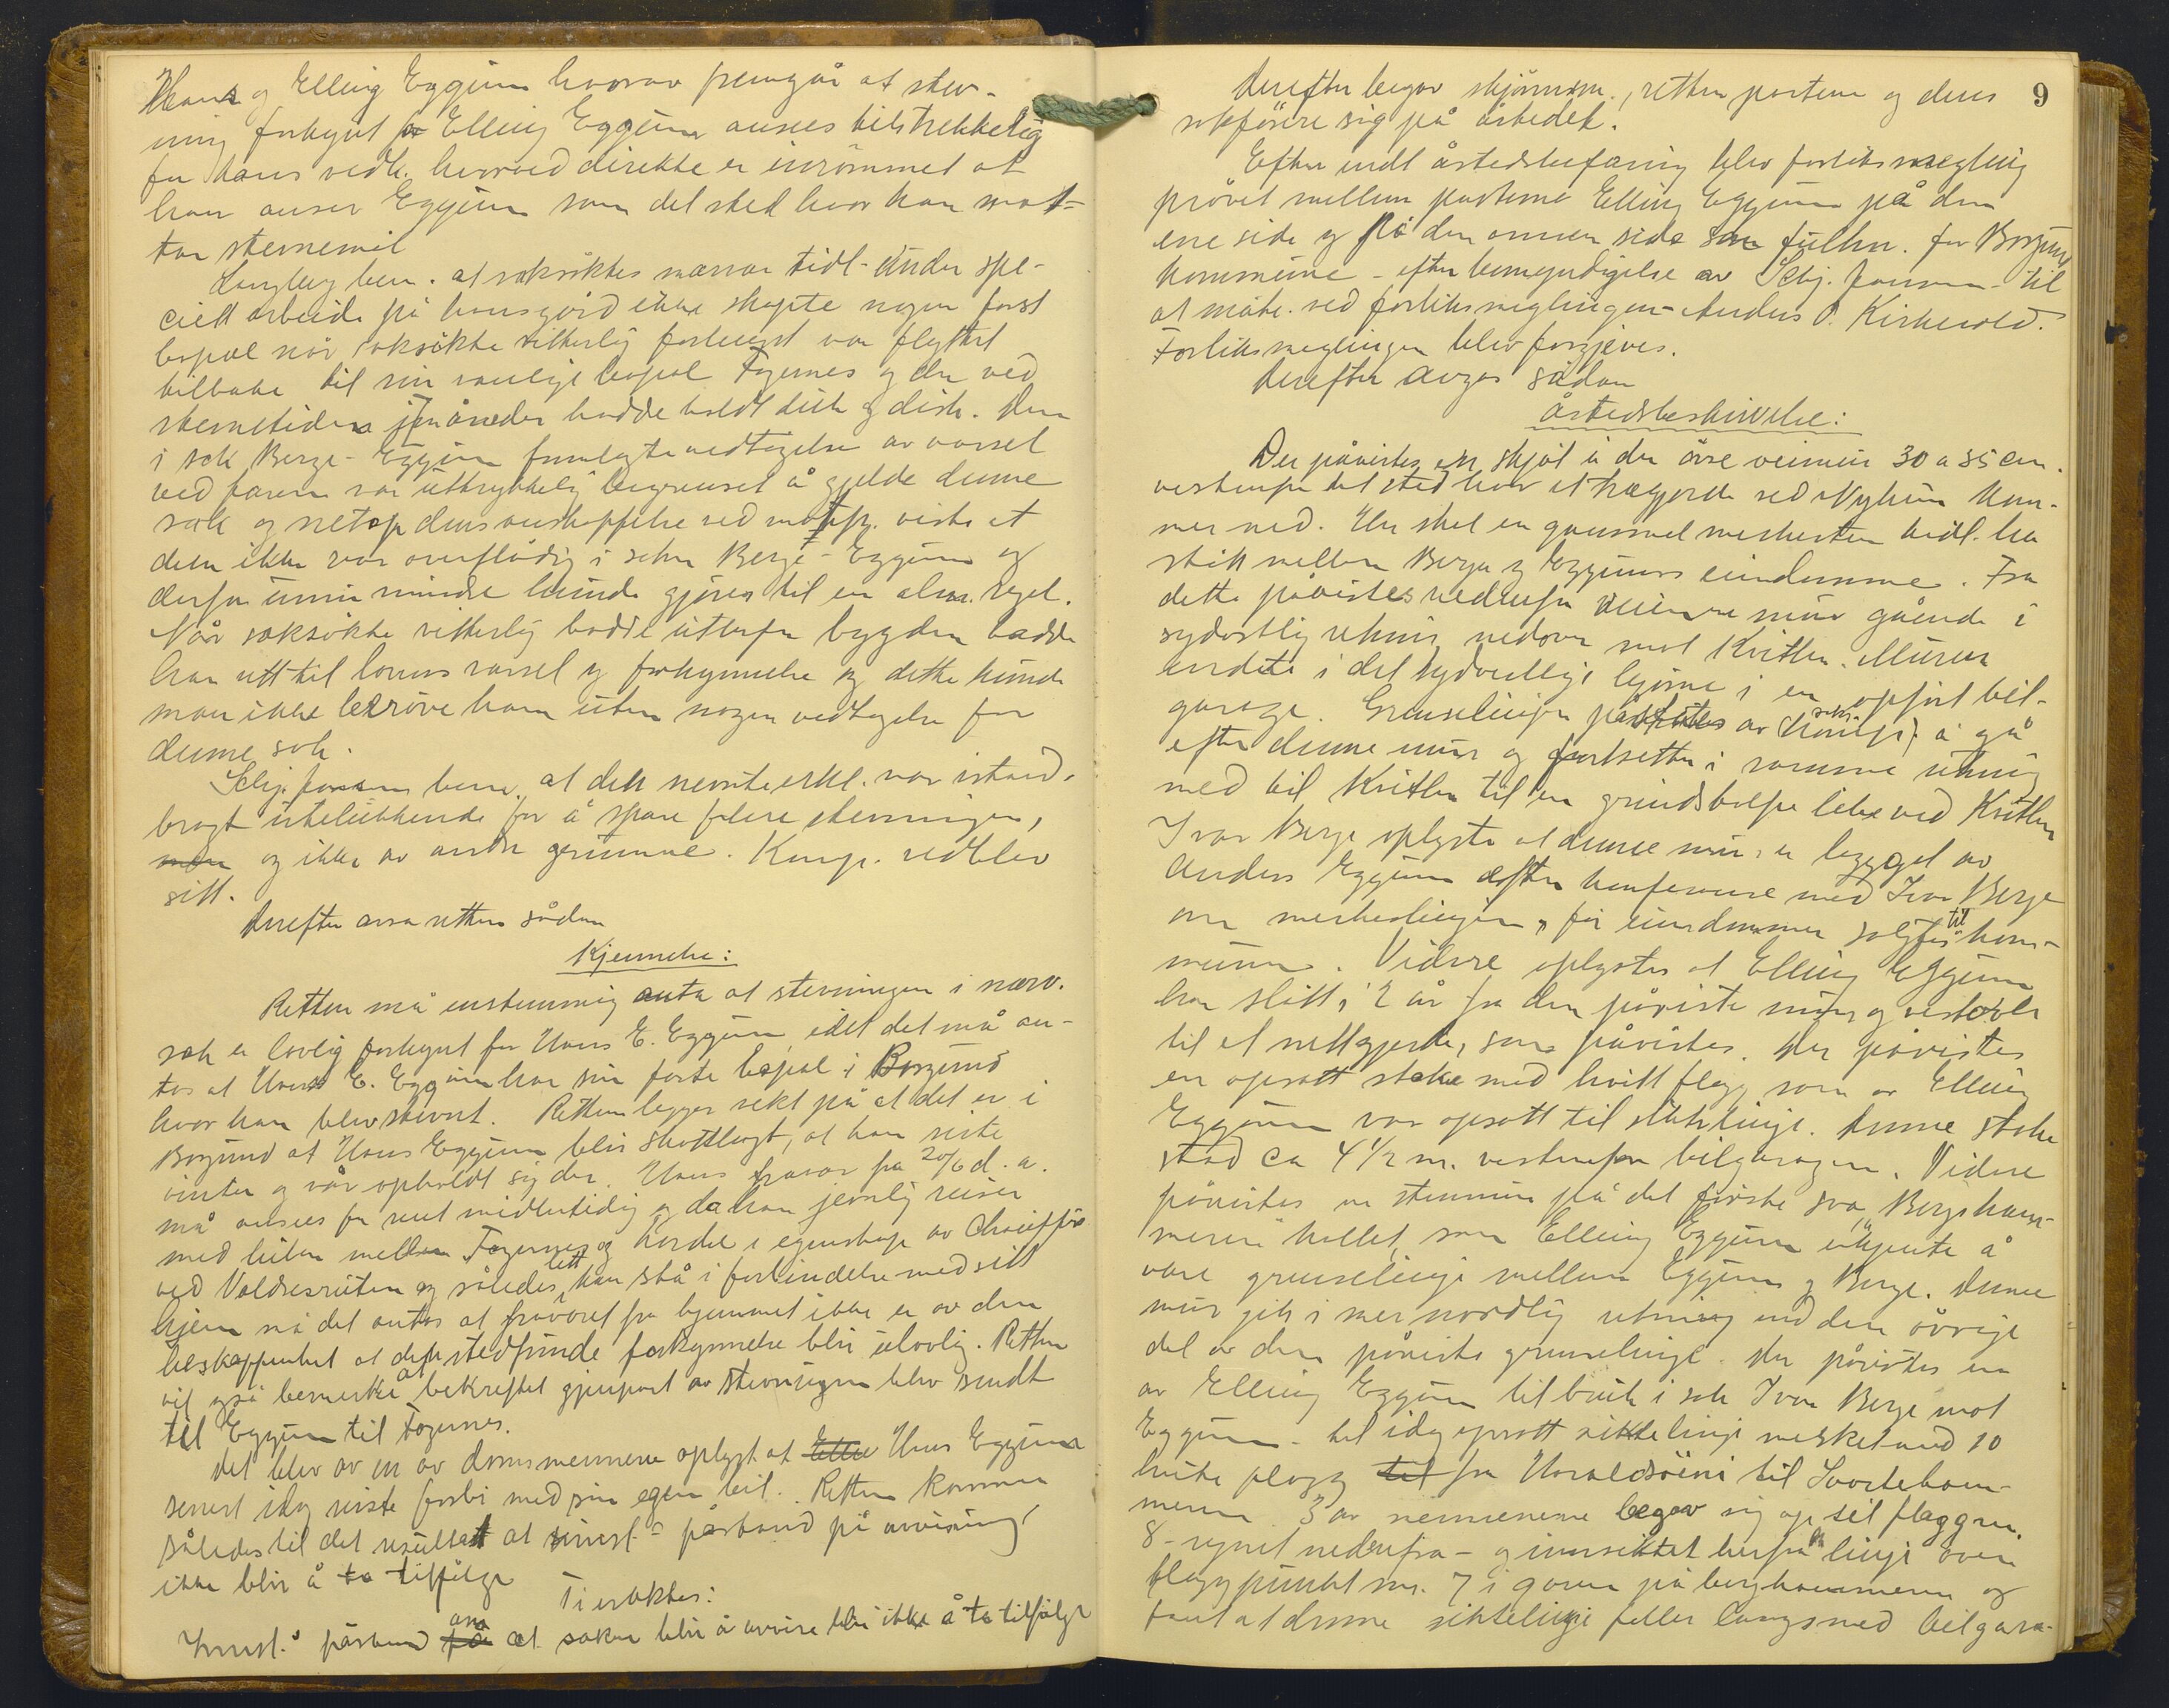 Hans og Elling Eggum hvorav fremgår at stev-
ning forkynt for Elling Eggum ansees tilstrekkelig
for Hans vedk. hvorved direkte er inrömmet at
han anser Eggum som det sted hvor han mot-
tar stevnemål
Langberg bem. at saksöktes nærvær tidl. under spe-
cielt arbeide på hans gård ikke skapte nogen fast
bopæl når saksökte vitterlig forlengst var flyttet
tilbake til sin vanlige bopæl Fagernes og der ved
stevnetiden i 7 måneder hadde holdt duk og disk. Den
i sak Berge - Eggum fremlagte vedtagelse av varsel
ved faren var uttrykkelig begrenset å gjelde denne
sak og netop dens anskaffelse ved motp. viste at
den ikke var overflödig i saken Berge - Eggum og
derfor ennu mindre kunde gjöres til en alm. regel.
Når saksökte vitterlig bodde utenfor bygden hadde
han rett til lovens varsel og forkynnelse og dette kunde
man ikke beröve ham uten nogen vedtagelse for
denne sak.
Schj. bem. at den nevnte erkl. var istand-
bragt utelukkende for å spare flere stevninger,
men og ikke av andre grunne. Kmp. vedblev
sitt.
Derefter avsa retten sådan
Kjennelse:
Retten må enstemmig anta at stevningen i nærv.
sak er lovlig forkynt for Hans E. Eggum, idet det må an-
tas at Hans E. Eggum har sin faste bopæl i Borgund
hvor han blev stevnt. Retten legger vekt på at det er i
Borgund at Hans Eggum blir skattlagt, at han siste
vinter og vår opholdt sig der. Hans fravær fra 20/6 d. a.
må ansees for rent midlertidig og da han jevnlig reiser
med bilen mellem Fagernes og Lærdal i egenskap av chaufför
ved Valdresruten og således lett kan stå i forbindelse med sitt
hjem må det antas at fraværet fra hjemmet ikke er av den
beskaffenhet at den stedfunde forkynnelse blir ulovlig. Retten
vil også bemerke at bekreftet gjenpart av stevningen blev sendt
til Eggum til Fagernes.
Det blev av en av domsmennene oplyst at Elling Hans Eggum
senest idag reiste forbi med sin egen bil. Retten kommer
således til det resultatt at innst.s påstand på avvisning
ikke blir å ta tilfölge
Ti eraktes:
Innst.s påstand på om at saken blir å avvise blir ikke å ta tilfölge
9
Derefter begav skjönnsm., retten partene og deres
sakförere sig på åstedet.
Efter endt åstedsbefaring blev forliksmegling
prövet mellem partene Elling Eggum på den
ene side og på den annen side som fullm. for Borgund
kommune - efter bemyndigelse av Schj. - til
at möte ved forliksmeglingen - Anders O. Kirkevold.
Forliksmeglingen blev forgjeves.
Derefter avgas sådan
åstedsbeskrivelse:
Der påvistes en skjöt i den övre veimur 30 a 35 cm.
vestenfor det sted hvor et tregjerde ved Nyheim kom-
mer ned. Her skal en gammel merkesten tidl. ha
stått mellem Berge og Eggums eiendomme. Fra
dette påvistes nedenfor veien en mur gående i
sydostlig retning nedover mot Kvitlen. Muren
endete i det sydvestlige hjörne i en opfört bil-
garage. Grenselinjen påstodes av saks. å gå
efter denne mur og fortsetter i samme retning
ned til Kvitlen til en grindstolpe like ved Kvitlen
Ivar Berge oplyste at denne mur er bygget av
Anders Eggum efter konferanse med Ivar Berge
om merkeslinjen, för eiendommen solgtes til kom-
munen. Videre oplystes at Elling Eggum
har slått i 2 år fra den påviste mur og vestover
til et nettgjerde, som påvistes. Der påvistes
en opsatt stake med hvitt flagg som av Elling
Eggum var opsatt til siktelinje. Denne stake
stod ca 4 1/2 m. vestenfor bilgaragen. Videre
påvistes en stenmur på det förste sva "Bergsham-
meren" kallet, som Elling Eggum erkjente å
være grenselinje mellem Eggum og Berge. Denne
mur gik i mer nordlig retning end den övrige
del av den påviste grenselinje. Der påvistes en
av Elling Eggum til bruk i sak Ivar Berge mot
Eggum - til idag opsatt siktelinje merket med 10
hvite flagg til fra Haraldsöini til Svarteham-
meren. 3 av nemnenene begav sig op til flagg nr.
8 - regnet nedenfra - og innsiktet herfra en linje over
flaggpunkt nr. 7 i gaven på berghammeren og
fant at denne siktelinje faller langsmed bilgara-